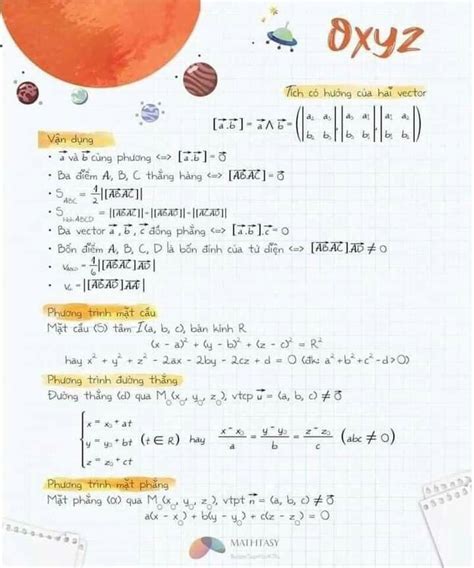 Oxyz
Tích có hướng của hai vector
[a⃗.b⃗] = a⃗ ∧ b⃗ = (|a₂ a₃; b₂ b₃|, |a₃ a₁; b₃ b₁|, |a₁ a₂; b₁ b₂|)
Vận dụng
• a⃗ và b⃗ cùng phương <=> [a⃗.b⃗] = 0⃗
• Ba điểm A, B, C thẳng hàng <=> [AB⃗.AC⃗] = 0⃗
• S_ABC = 1/2 |[AB⃗.AC⃗]|
• S_hbh.ABCD = |[AB⃗.AC⃗]| = |[AB⃗.AD⃗]| = |[AC⃗.AD⃗]|
• Ba vector a⃗, b⃗, c⃗ đồng phẳng <=> [a⃗.b⃗].c⃗ = 0
• Bốn điểm A, B, C, D là bốn đỉnh của tứ diện <=> [AB⃗.AC⃗].AD⃗ ≠ 0
• V_ABCD = 1/6 |[AB⃗.AC⃗].AD⃗|
• |[AB⃗.AD⃗].AA⃗'|
Phương trình mặt cầu
Mặt cầu (S) tâm I(a, b, c), bán kính R
(x - a)² + (y - b)² + (z - c)² = R²
hay x² + y² + z² - 2ax - 2by - 2cz + d = 0 (đk: a² + b² + c² - d > 0)
Phương trình đường thẳng
Đường thẳng (d) qua M₀(x₀, y₀, z₀), vtcp u⃗ = (a, b, c) ≠ 0⃗
{ x = x₀ + at
y = y₀ + bt (t ∈ R) hay (x - x₀)/a = (y - y₀)/b = (z - z₀)/c (abc ≠ 0)
z = z₀ + ct
Phương trình mặt phẳng
Mặt phẳng (α) qua M₀(x₀, y₀, z₀), vtpt n⃗ = (a, b, c) ≠ 0⃗
a(x - x₀) + b(y - y₀) + c(z - z₀) = 0
MATHTASY